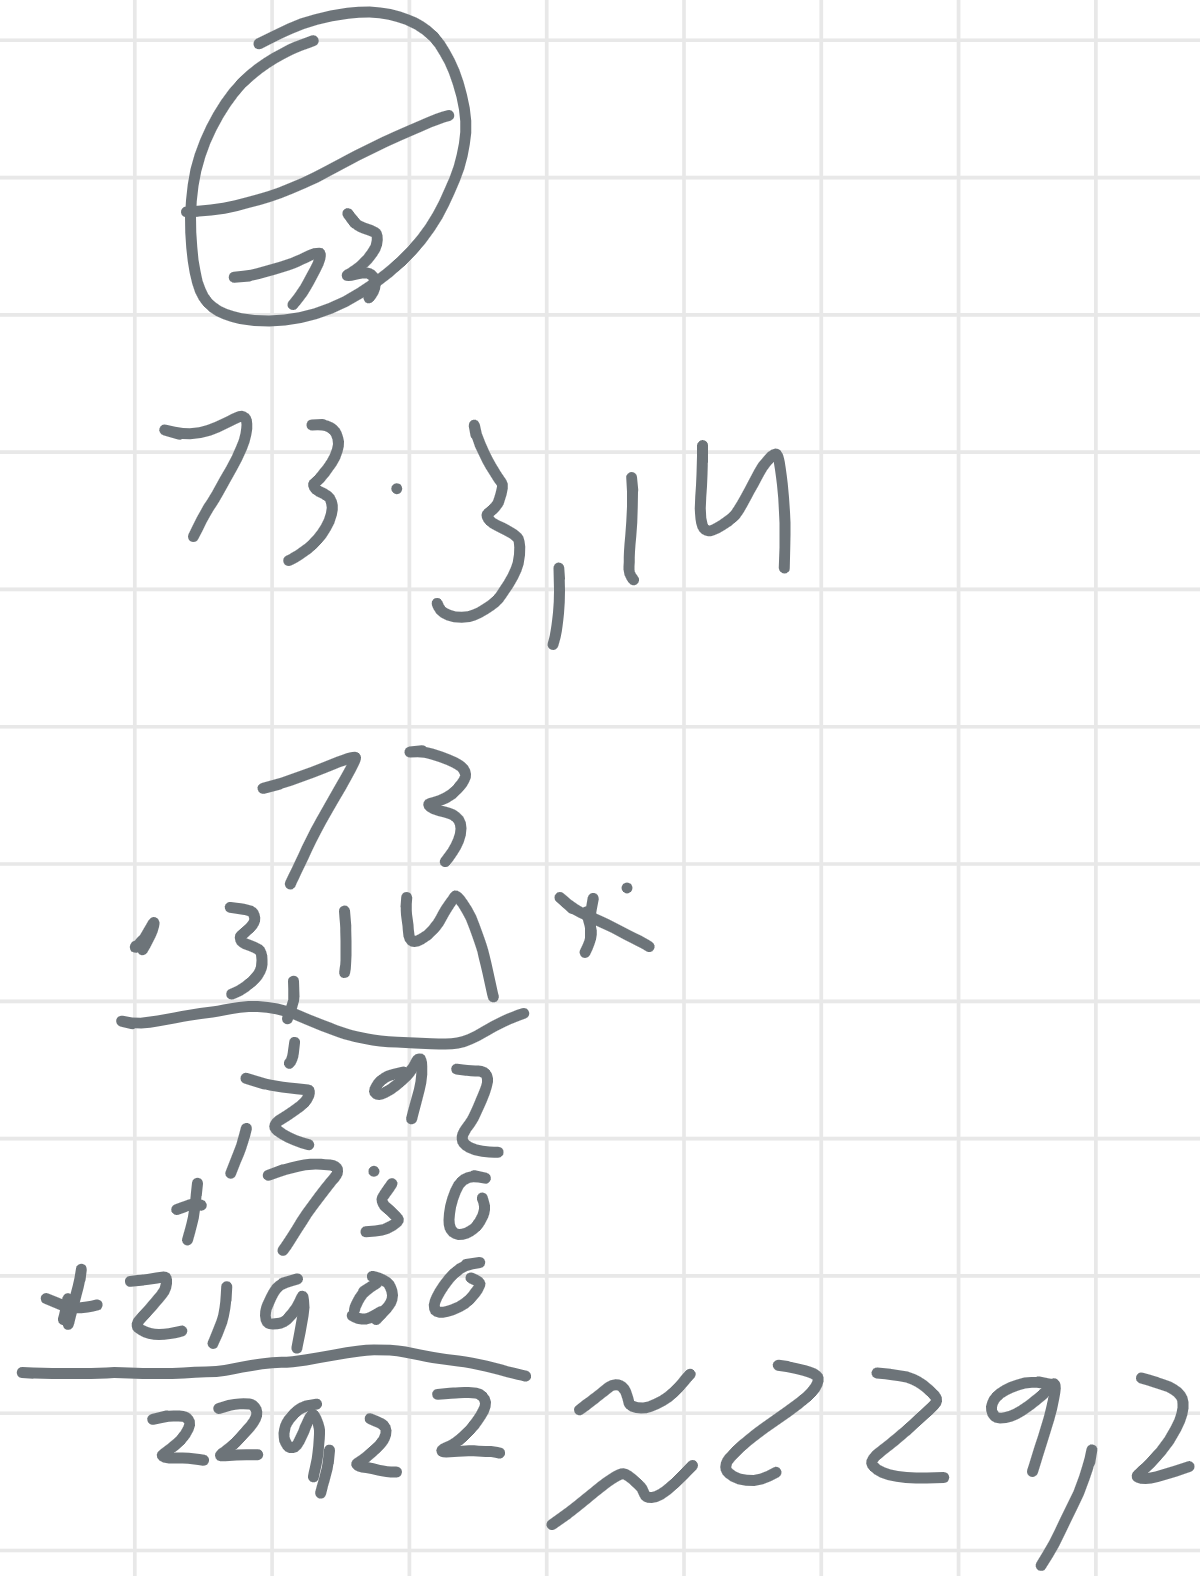 73
73·3,14
73
·3,14
292
+730
+21900
229,22 ≈229,2